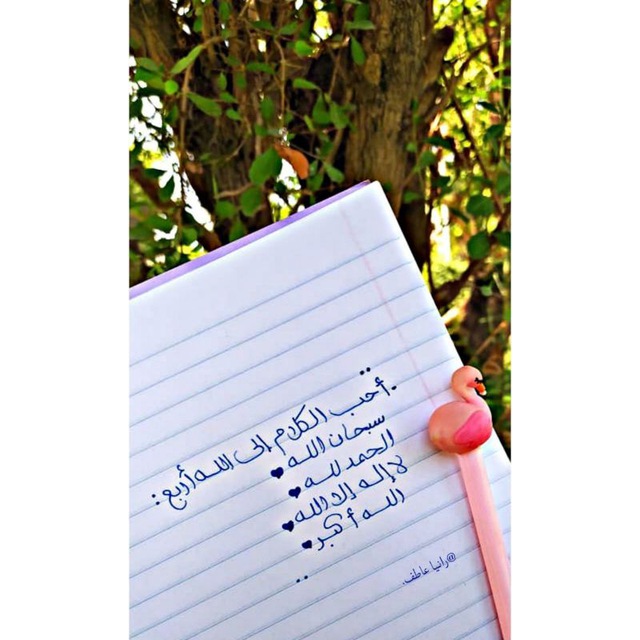 ..
.أحب الكلام إلى الله أربع:
سبحان الله ♥
الحمد لله ♥
لا إله إلا الله ♥
الله أكبر ♥
..
@رانيا عاطف.